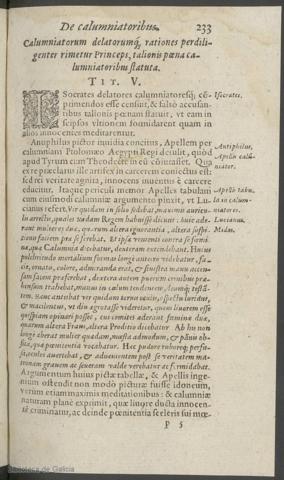 De calumniatoribus. 233
Calumniatorum delatorumq́; rationes perdili-
genter rimetur Princeps, talionis pœna ca-
lumniatoribus statuta.
TIT. V.
Isocrates delatores calumniatoresq́; cō-
primendos esse censuit, & falsò accusan-
tibus talionis pœnam statuit, vt eam in
seipsos vltionem formidarent quam in
alios innocentes meditarentur.
Isocrates.
Anuphilus pictor inuidia concitus, Apellem per
calumniam Ptolomæo Aegypti Regi detulit, quòd
apud Tyrum cum Theodote in eū cōiurasset. Qua
ex re præclarus ille artifex in carcerem coniectus est:
sed rei veritate agnita, innocens inuentus è carcere
educitur. Itaque periculi memor Apelles tabulam
cum eiusmodi calumniæ argumento pinxit, vt Lu-
cianus refert. Vir quidam in solio sedebat, maximis auricu-
lis arrectis, quales eundam Regem habuisse dicunt: huic adsta-
rant mulieres duæ, quarum altera ignorantia, altera suspi-
Antiphilus.
Apellis calū-
niator.
Apellis tabu-
la in calum-
niatores.
Lucianus.
Midas.
ne, quæ Calumnia dicebatur, dexteram extendebat. Huius
pulchritudo mortalium formas longè antecire videbatur, fa-
cie, ornatu, colore, admiranda erat, & sinistra manu accen-
sam facem præferebat, dextera autem puerum crinibus præ-
hensum trahebat, manus in cælum tendentem, Deumq́; testā-
tem. Hanc anteibat vir quidam
macilentus, vt diu ægrotasse videretur, quem liuorem esse
quispiam opinari posset, eius comites aderant feminæ duæ,
quarum altera Fraus, altera Proditio dicebatur. Ab his non
longè aberat mulier quædam, mœsta admodum, & pānis ob-
sita, quæ pœnitentia vocabatur. Hæc pudore ruboreq́; perfu-
sa, oculos auertebat, & aduenientem post se veritatem ma-
tronam grauem ac seueram valdè verebatur ac formidabat.
Argumentum huius pictæ tabellæ, & Apellis inge-
nium ostendit non modò picturæ fuisse idoneum,
verum etiam maximis meditationibus: & calumniæ
naturam planè exprimit, quæ liuore ducta innocen-
tē criminatur, ac deinde pœnitentia sceleris sui mœ-
P 5
Biblioteca de Galicia